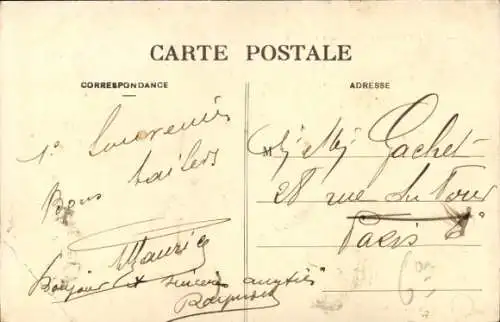 CARTE POSTALE
CORRESPONDANCE
ADRESSE
1er Souvenir
Bons
Maurice
Bonjour et sincères amitiés
Raymond
M
Gachet
28 rue du Four
Paris 6e
6e